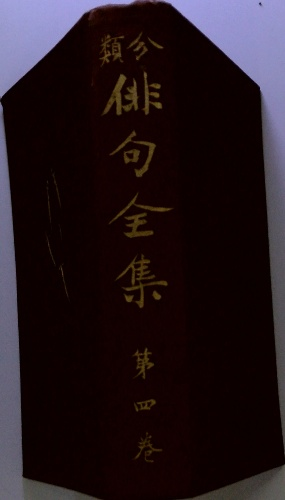 分類
俳句全集
第四卷